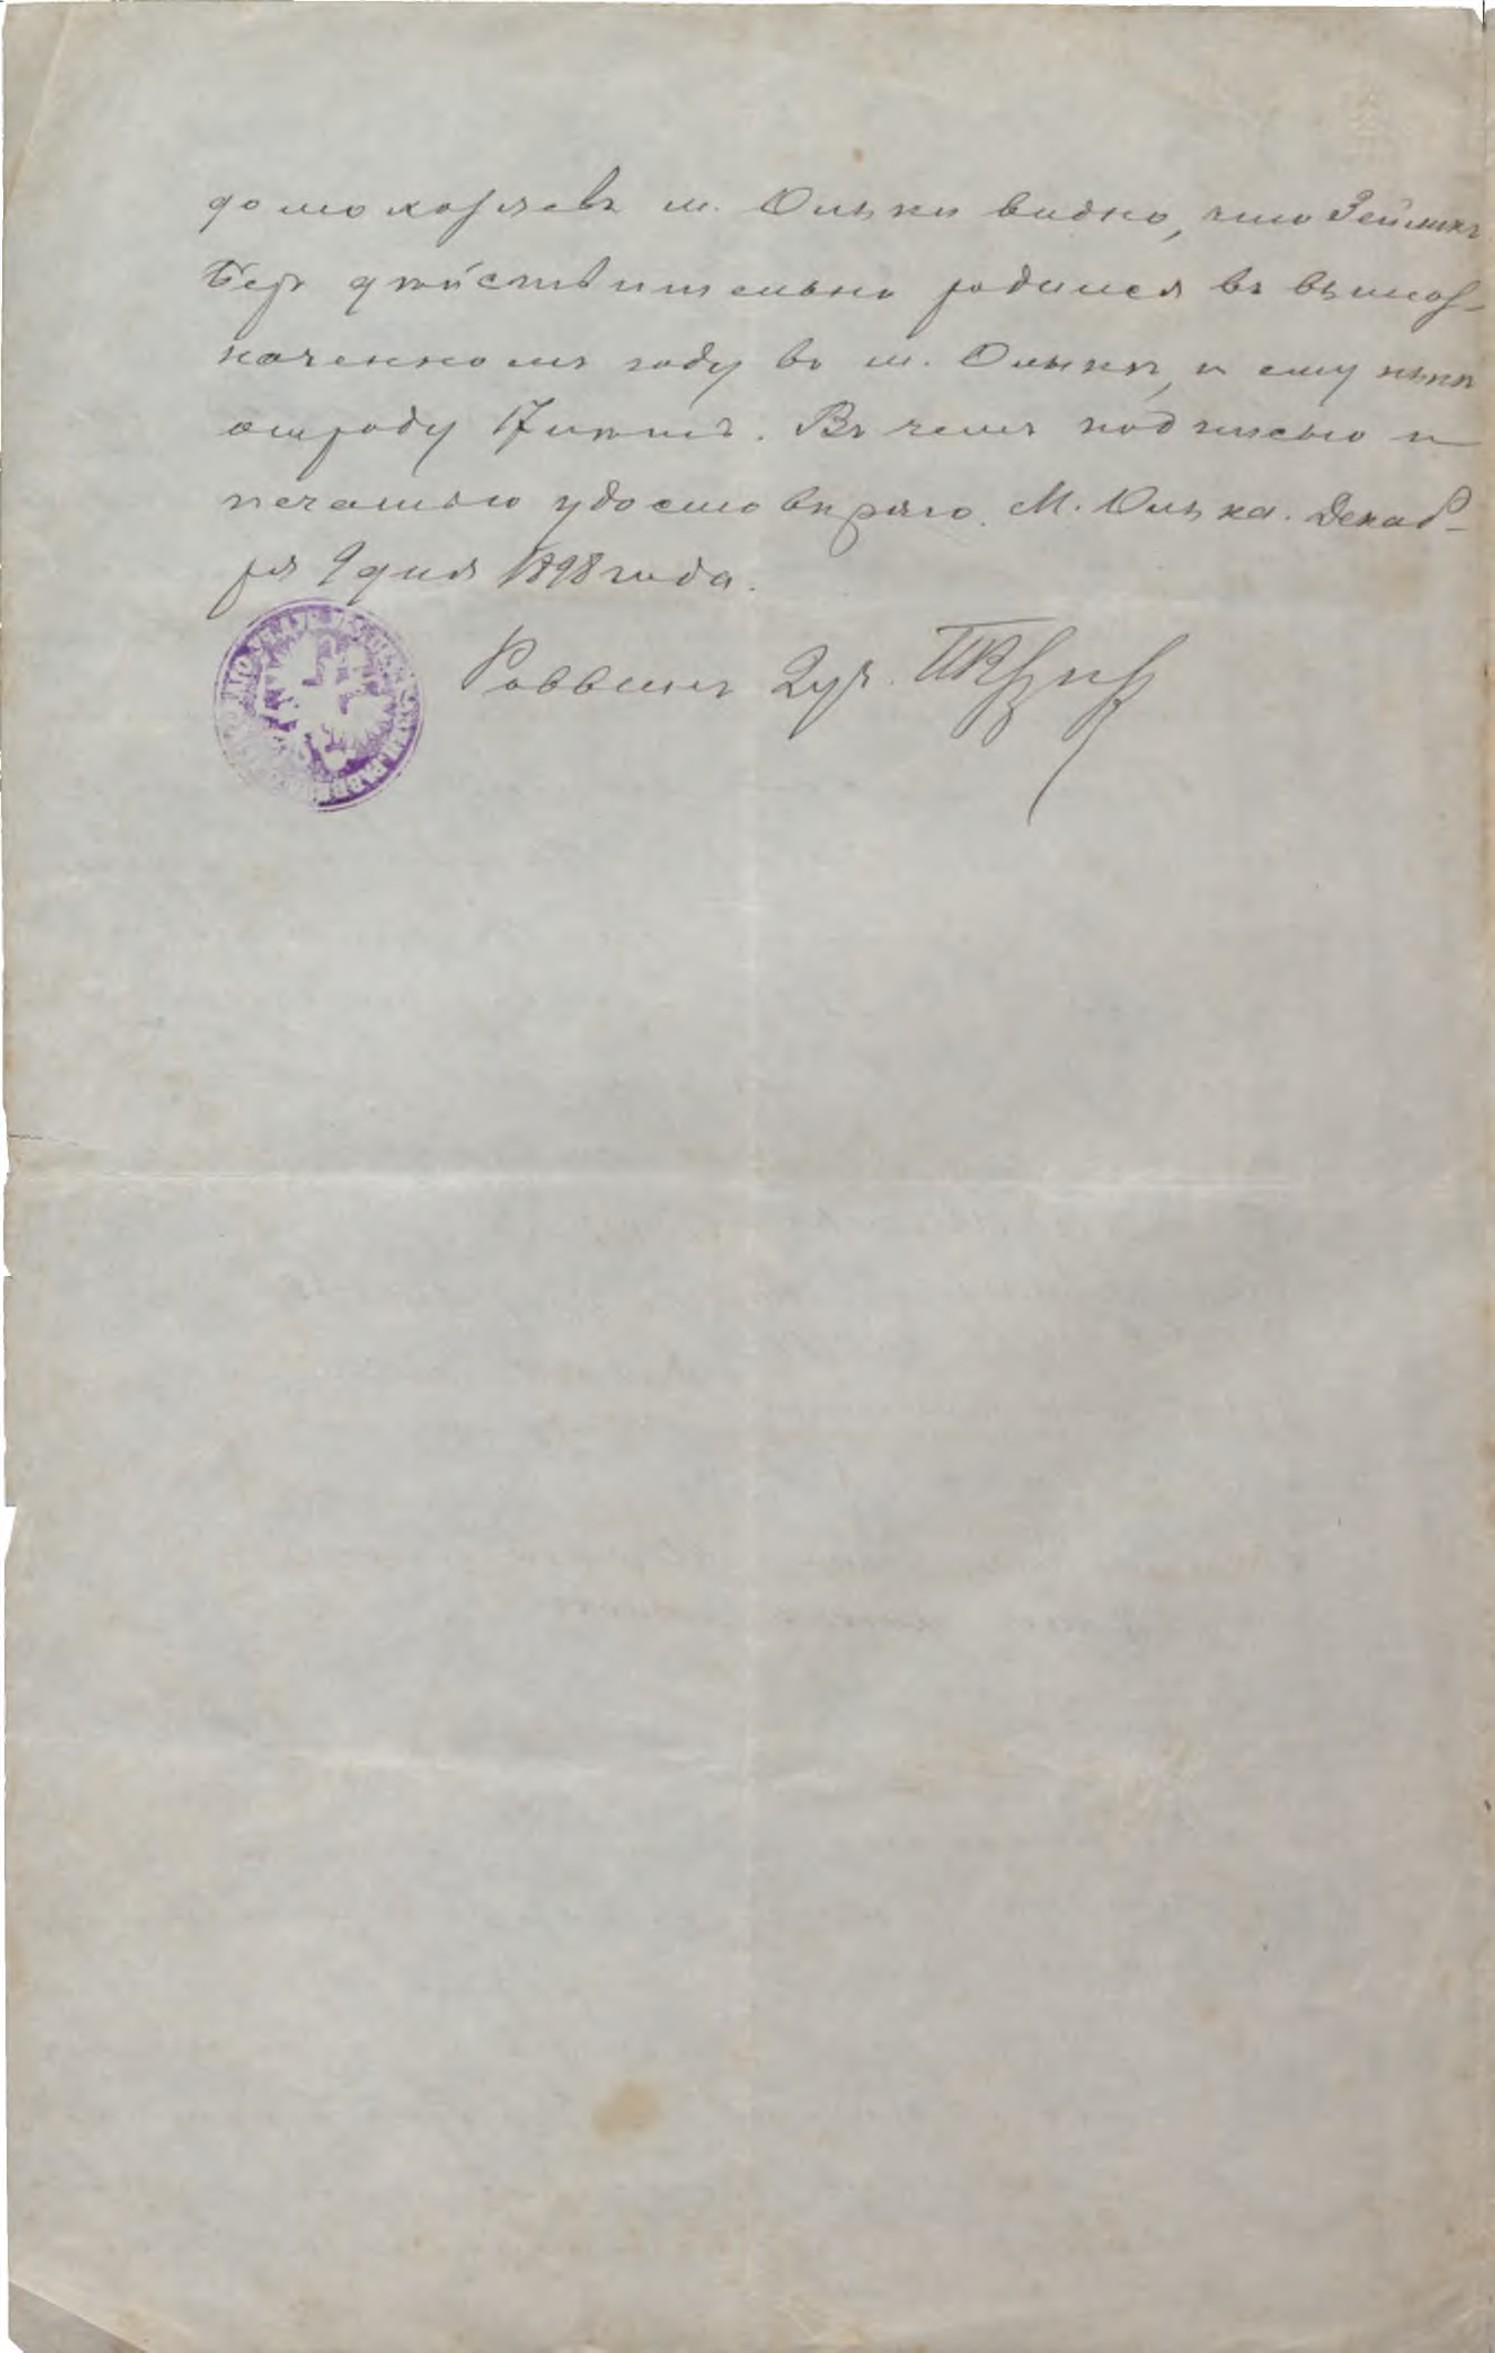 домохозяевъ м. Олыки видно, что Зейликъ
Беръ дѣйствительно родился въ вышеоз-
наченномъ году въ м. Олыкѣ, и ему нынѣ
отроду 17 лѣтъ. Въ чемъ подписью и
печатью удостовѣряю. М. Олыка. Декаб-
ря 9 дня 1898 года.
Раввинъ